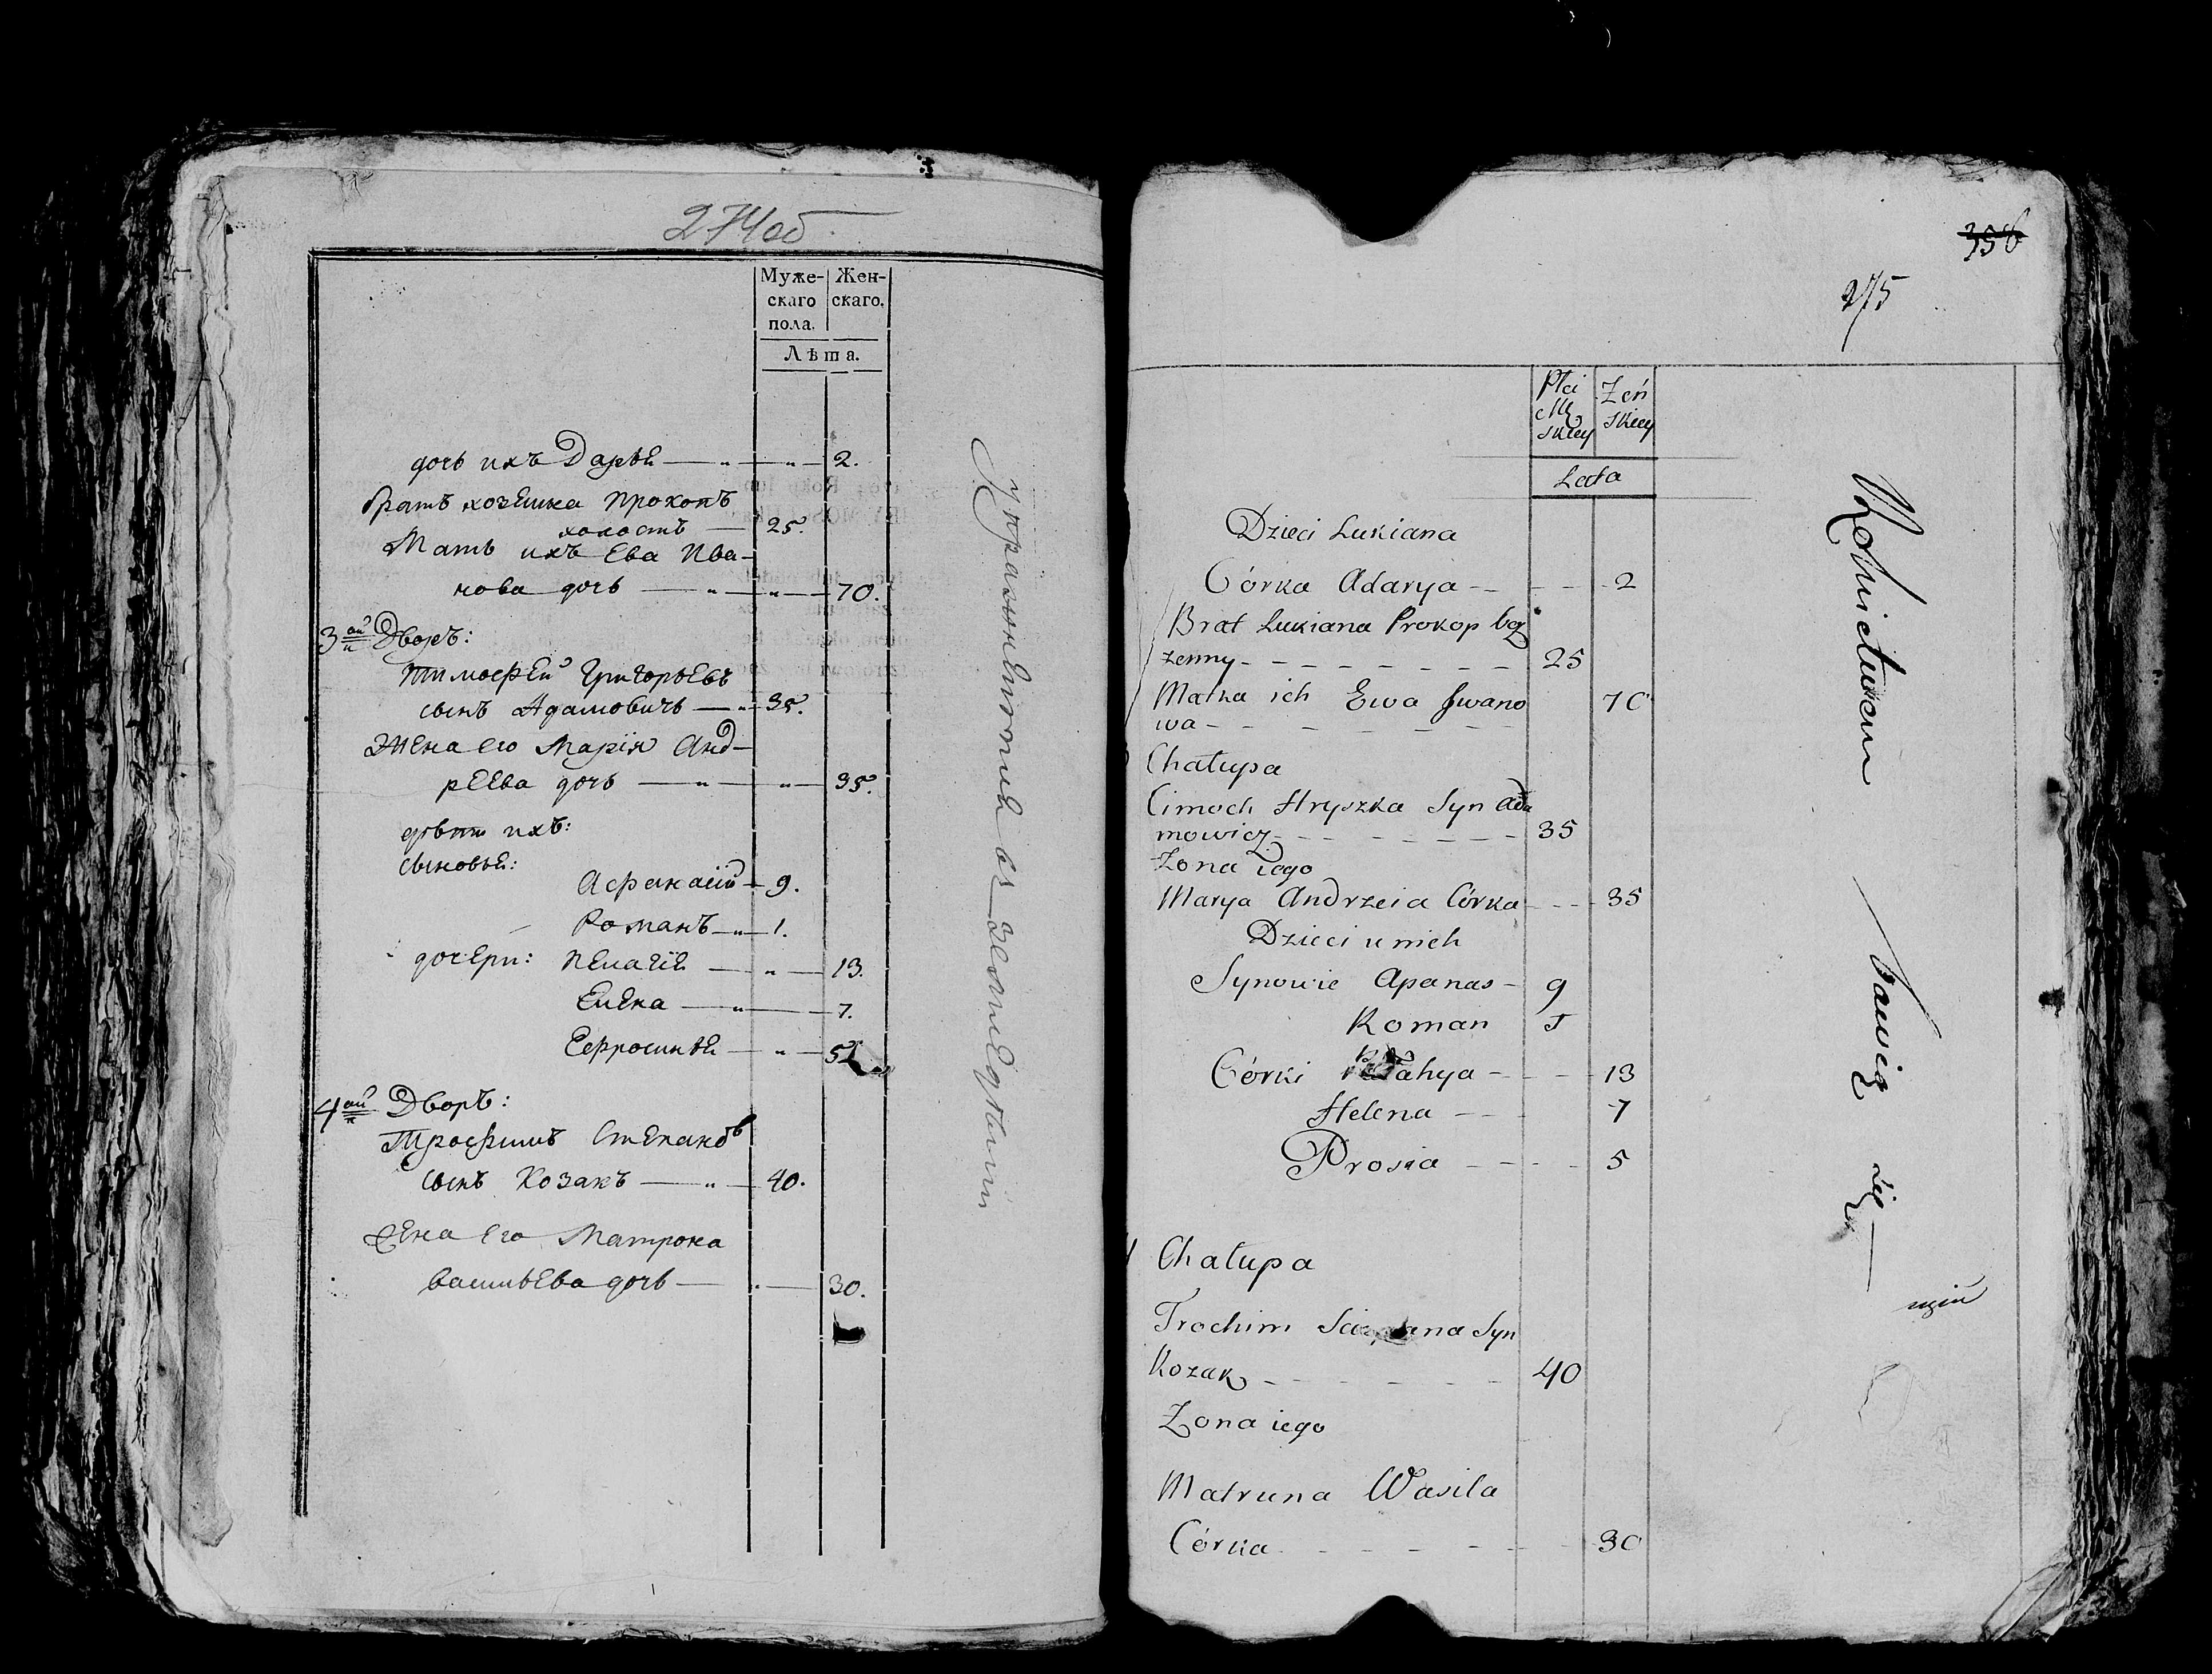 274об
Муже-
скаго
пола.
Жен-
скаго.
Лѣта.
дочь ихъ Дарья — 2.
братъ хозяина Прокопъ
холостъ — 25.
Мать ихъ Ева Ива-
нова дочь — 70.
3ай Дворъ:
Тимофей Григорьевъ
сынъ Адамовичъ — 35.
Жена его Марія Анд-
реева дочь — 35.
дѣти ихъ:
сыновья:
Афанасій — 9.
Романъ — 1.
дочери: Пелагія — 13.
Елена — 7.
Ефросинья — 5
4ай Дворъ:
Трофимъ Степановъ
сынъ Козакъ — 40.
Жена его Матрона
васильева дочь — 30.
къ
358
275
Płci
Męskiey
Żeń
skiey
Lata
Dzieci Lukiana
Córka Adarya - - - - 2
Brat Lukiana Prokop bez
żenny - - - - - - - 25
Matka ich Ewa Jwano 70
wa - - - - - -
Chałupa
Cimoch Hryszka Syn Ada
mowicz - - - - - - - 35
Żona iego
Marya Andrzeia Córka - - - 35
Dzieci u nich
Synowie Apanas - 9
Roman J
Córki - - - 13
Helena - - 7
Prosia - - - - 5
4 Chałupa
Trochim Syn
Kozak - - - - - - 40
Żona iego
Matruna Wasila
Córka - - - - - - 30